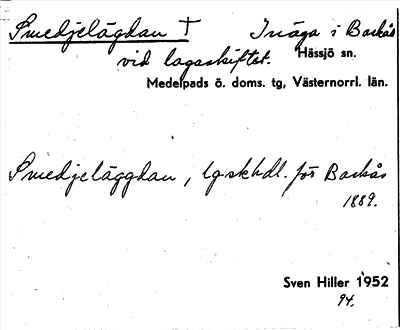 Smedjelägdan † Inäga i Backås
vid lagaskiftet. Hässjö sn.
Medelpads ö. doms. tg, Västernorrl. län.
Smedjeläggdan, lgskhdl. för Backås
1889.
Sven Hiller 1952
94.